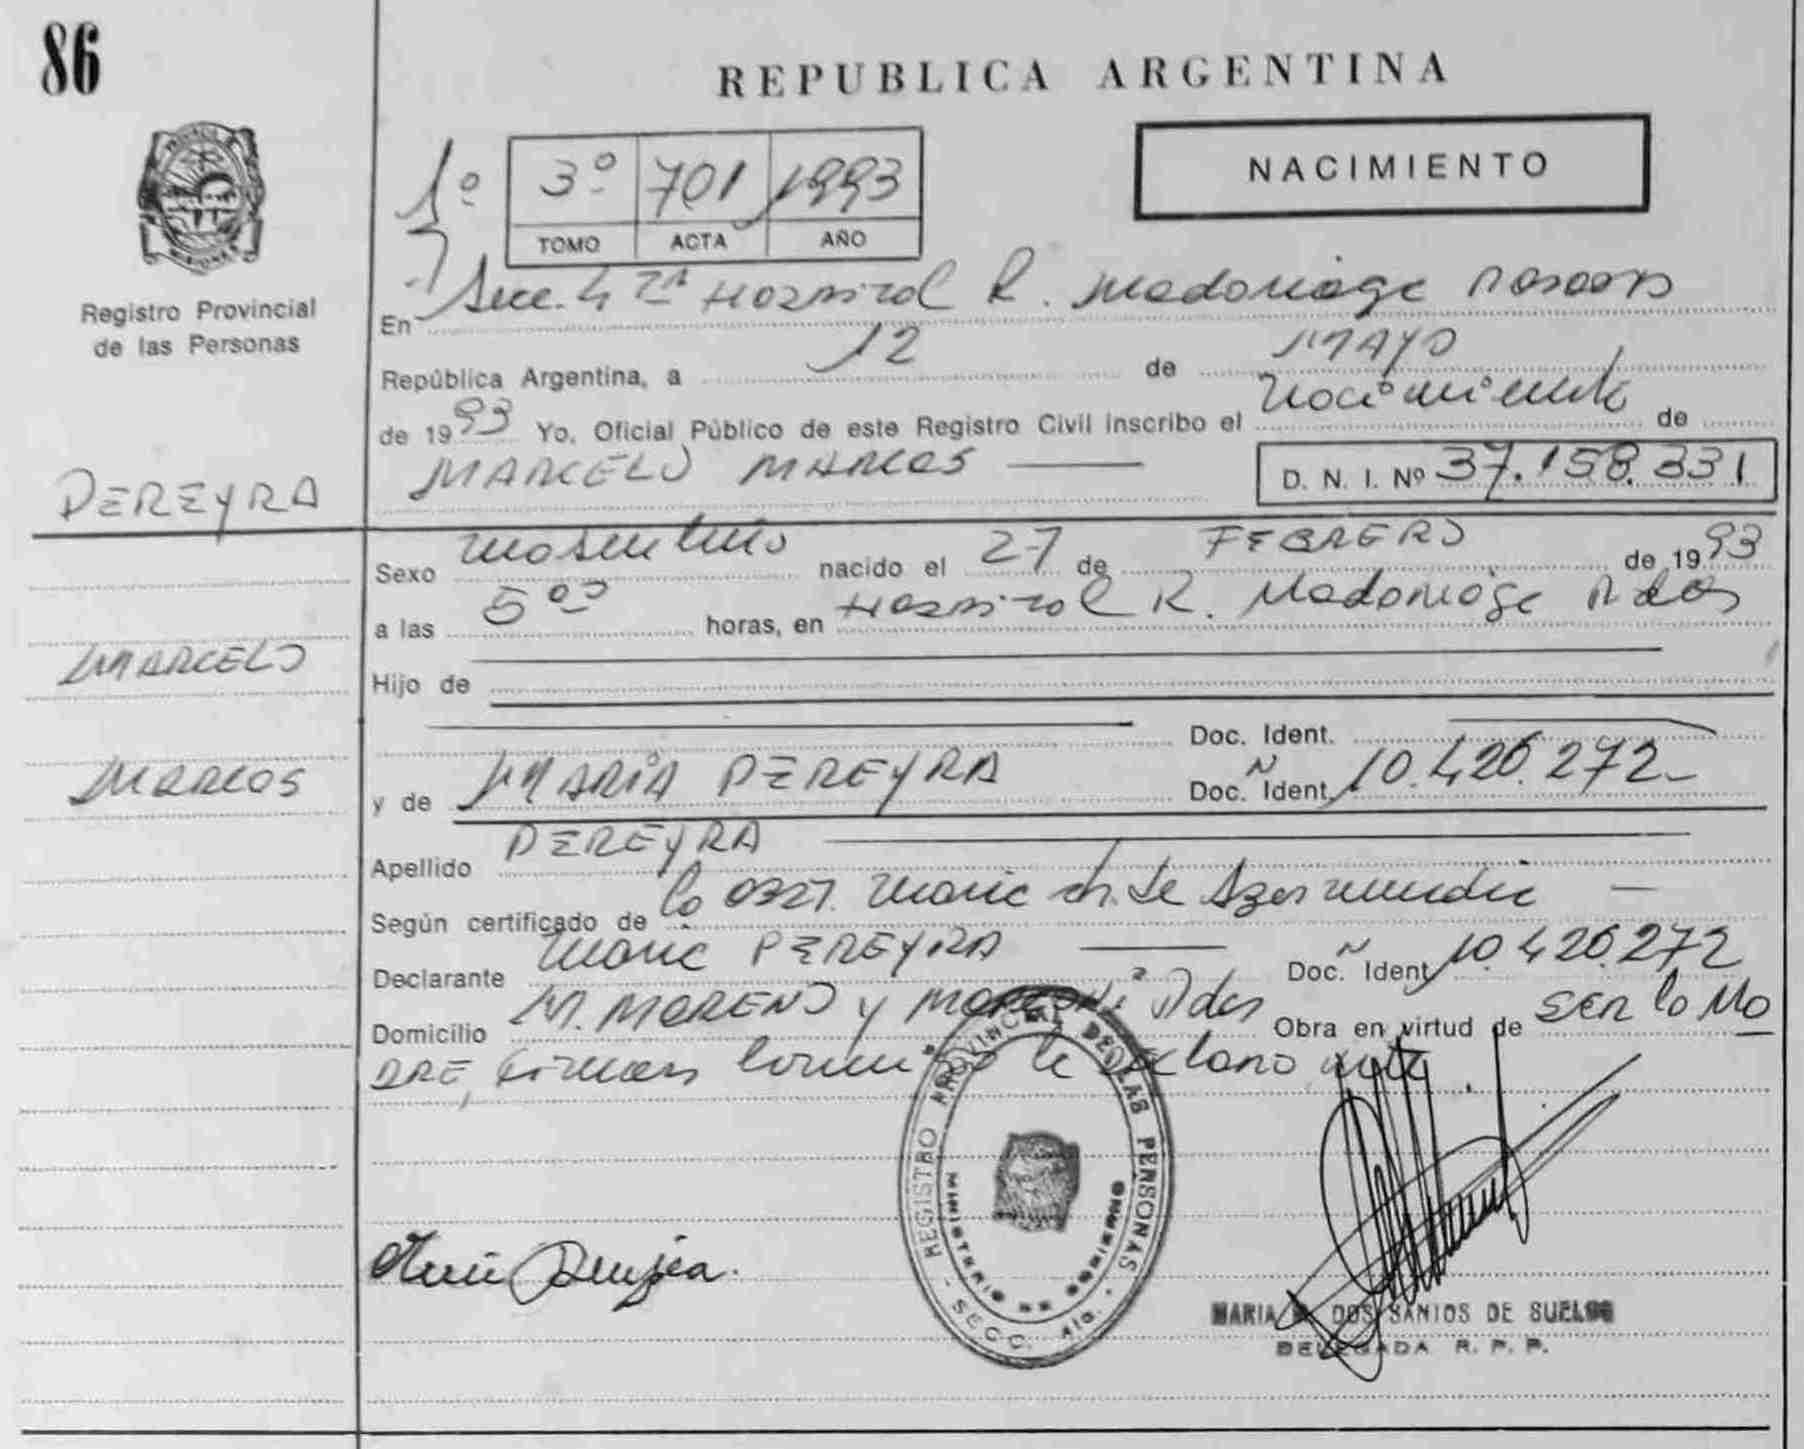 86
REPUBLICA ARGENTINA
NACIMIENTO
1º 3º 701 1993
TOMO ACTA AÑO
Registro Provincial
de las Personas
En Secc. 4ta Hospital R. Madariaga Posadas
República Argentina, a 12 de MAYO
de 1993 Yo, Oficial Público de este Registro Civil inscribo el Nacimiento de
MARCELO MARCOS D. N. I. Nº 37.158.331
PEREYRA
Sexo masculino nacido el 27 de FEBRERO de 1993
a las 5 horas, en Hospital R. Madariaga Pdas
MARCELO
Hijo de
Doc. Ident.
MARCOS
y de MARIA PEREYRA Doc. Ident. 10.426.272
Apellido PEREYRA
Según certificado de la Obst. Maria de
Declarante Maria PEREYRA Doc. Ident. 10.426.272
Domicilio M. MORENO y MARCONI Pdas Obra en virtud de SER la MA
DRE, la declarante
REGISTRO PROVINCIAL DE LAS PERSONAS
MINISTERIO DE GOBIERNO
SECC. 4ta.
MARIA DOS SANTOS DE SUELDO
DELEGADA R. P. P.